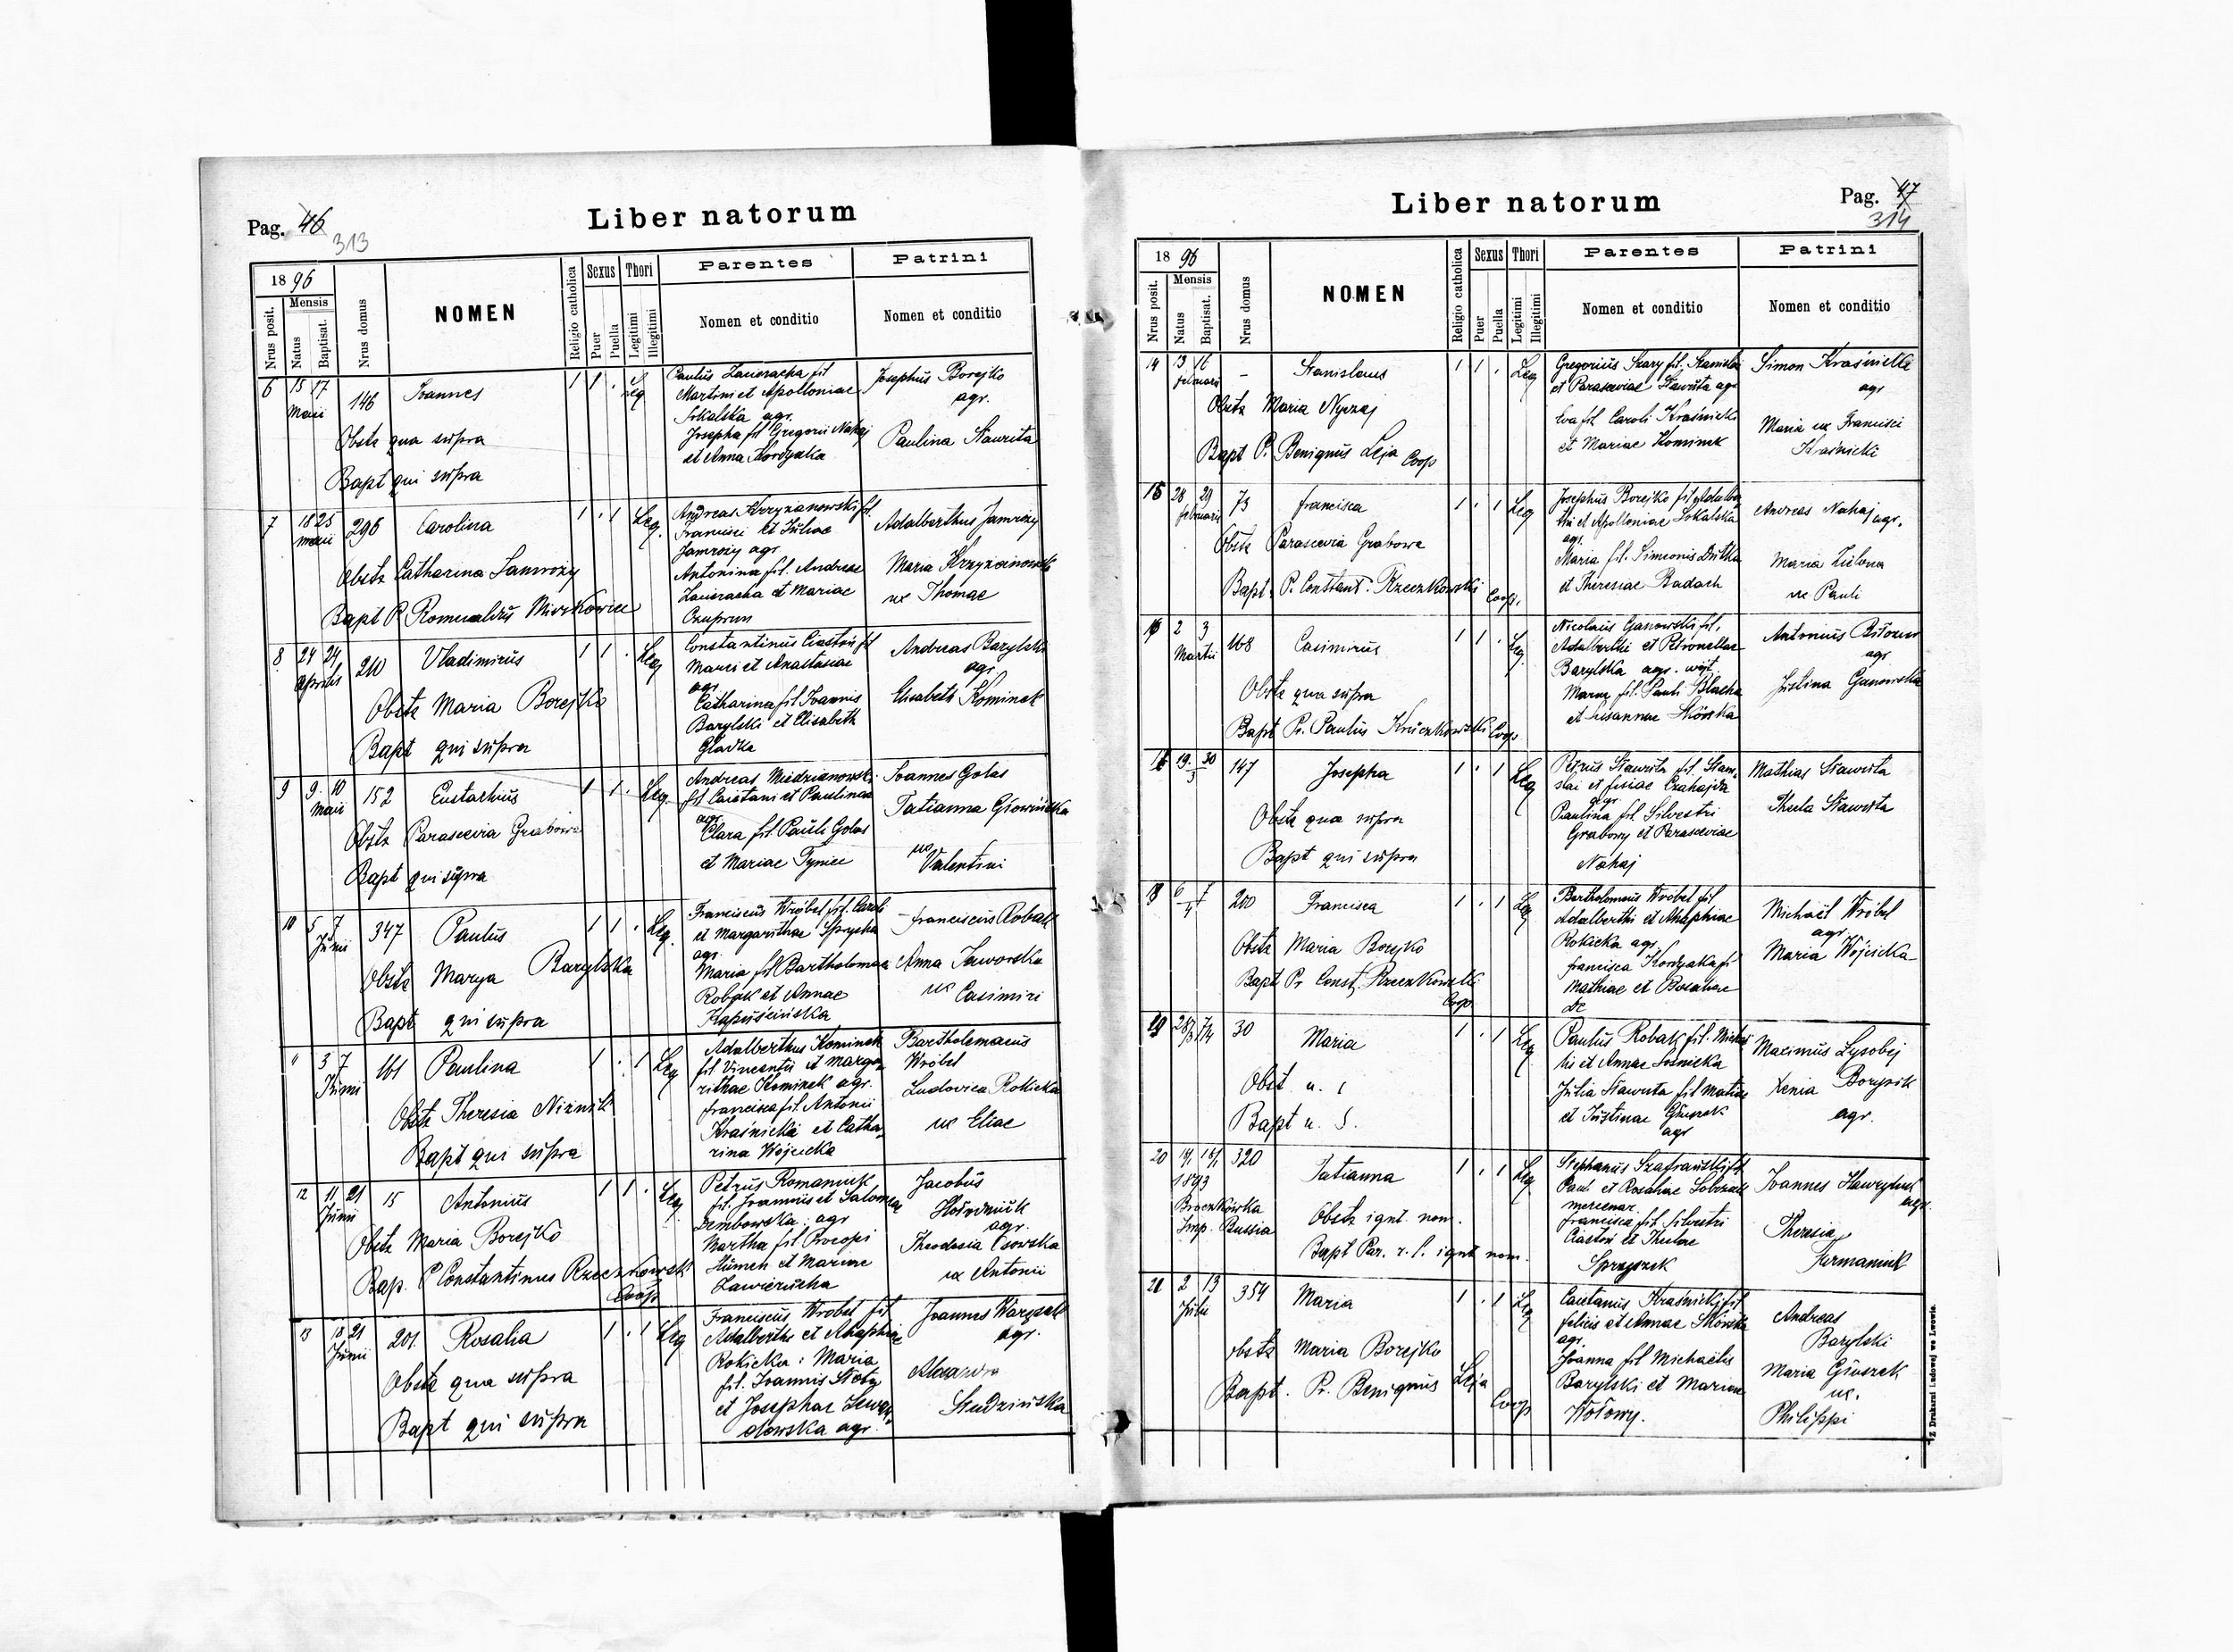 Pag. 46
313
Liber natorum
1896
Nrus posit.
Mensis
Natus
Baptisat.
Nrus domus
NOMEN
Religio catholica
Sexus
Puer
Puella
Thori
Legitimi
Illegitimi
Parentes
Nomen et conditio
Patrini
Nomen et conditio
6 15 17 Maii 146 Ioannes 1 1 . Leg
Obstz qua supra
Bapt qui supra
Paulus Zawieracha fil
Martini et Apolloniae
Sokalska agr.
Josepha fil Gregorii Nahaj
et Anna Kordyaka
Josephus Borejko
agr.
Paulina Sławuta
7 18 25 maii 296 Carolina 1 . 1 Leg.
Obstz Catharina Jamroży
Bapt P. Romualdus
Andreas Krzyżanowski fil.
Francisci et Juliae
Jamroży agr
Antonina fil. Andreae
Zawieracha et Mariae
Czuprun
Adalberthus Jamroży
Maria Krzyżanowska
ux Thomae
8 24 24 Aprilis 210 Vladimirus 1 1 . Leg
Obstz Maria Borejko
Bapt qui supra
Constantinus Ciastoń fil
Marci et Anastasiae
agr
Catharina fil Ioannis
Barylski et Elisabeth
Gladka
Andreas Barylski
agr
Elisabeth Kominek
9 9 10 Maii 152 Eustachius 1 1 . Leg.
Obstz Parascevia Grabowa
Bapt qui supra
Andreas Miedzianowski
fil Caietani et Paulinae
agr
Clara fil. Pauli Golas
et Mariae Tyniec
Ioannes Golas
Tatianna Głowińska
ux
Valentini
10 5 7 Junii 347 Paulus 1 1 . Leg.
Obstz Marya Barylska
Bapt qui supra
Franciscus Wróbel fil. Caroli
et Margarithae Sprycha
agr.
Maria fil Bartholomaei
Robak et Annae
Kapuścińska
Franciscus Robak
Anna Jaworska
ux Casimiri
11 3 7 Junii 161 Paulina 1 . 1 Leg
Obstz Theresia Niznik
Bapt qui supra
Adalberthus Kominek
fil Vincentii et Marga
rithae Kominek agr.
Francisca fil. Antonii
Kraśnicki et Catha
rina Wojcicka
Bartholomaeus
Wróbel
Ludovica Rokicka
ux Eliae
12 11 21 Junii 15 Antonius 1 1 . Leg
Obstz Maria Borejko
Bap. P Constantinus Rzeczkowski
Coop
Petrus Romaniuk
fil. Ioannis et Salomeae
Dembowska agr
Martha fil Procopi
Humen et Mariae
Zawierucha
Jacobus
agr.
Theodosia Osowska
ux Antonii
13 18 21 Junii 201 Rosalia 1 . 1 Leg
Obstz qua supra
Bapt qui supra
Franciscus Wrobel fil
Adalberthi et Ahaphiae
Rokicka : Maria
fil. Ioannis Słoty
et Josephae Lewan
dowska agr.
Joannes Warszak
agr.
Studzińska
Liber natorum
Pag. 47
314
1896
Nrus posit.
Mensis
Natus
Baptisat.
Nrus domus
NOMEN
Religio catholica
Sexus
Puer
Puella
Thori
Legitimi
Illegitimi
Parentes
Nomen et conditio
Patrini
Nomen et conditio
14 13 16 februarii - Stanislaus 1 1 . Leg
Obstz Maria Nyczaj
Bapt P. Benignus Leja Coop
Gregorius Szary fil. Stanislai
et Parasceviae Sławuta agr
Eva fil Caroli Kraśnicki
et Mariae Kominek
Simon Kraśnicki
agr
Maria ux Francisci
Kraśnicki
15 28 29 februarii 73 Francisca 1 . 1 Leg
Obstz Parascevia Grabowa
Bapt. P. Constant. Rzeczkowski Coop.
Josephus Borejko fil Adalber
thi et Apolloniae Sokalska
agr.
Maria fil. Simeonis Dutka
et Theresiae Badach
Andreas Nahaj agr.
Maria Zielona
ux Pauli
16 2 3 Martii 168 Casimirus 1 1 . Leg.
Obstz qua supra
Bapt Pr. Paulus Kruczkowski Coop
Nicolaus Ganowski fil.
Adalberthi et Petronellae
Barylska agr. wójt
Maria fil. Pauli Blacha
et Susannae Skórska
Antonius
agr
Justina Ganowska
19 30 3 147 Josepha 1 . 1 Leg
Obstz qua supra
Bapt qui supra
Petrus Sławuta fil. Stani
slai et Czahajda
agr
Paulina fil Silvestri
Grabowy et Parasceviae
Nahaj
Mathias Sławuta
Thecla Sławuta
18 6 7 4 200 Francisca 1 . 1 Leg
Obstz Maria Borejko
Bapt Pr Const. Rzeczkowski
Coop
Bartholomeus Wróbel fil
Adalberthi et Ahaphiae
Rokicka agr.
Francisca Kordyaka fil
Mathiae et Rosaliae
De
Michaël Wróbel
agr
Maria Wójcicka
19 28/3 7/4 30 Maria 1 . 1 Leg
Obst u. s
Bapt u. S.
Paulus Robak fil. Micha
lis et Annae Sośnicka
Julia Sławuta fil Matiae
et Justinae Głuszek
agr
Maximus Lysobej
Xenia Borysik
agr.
20 14/1 16/1 320 Tatianna 1 . 1 Leg
1893
Imp. Russia
Obstz ignt. nom.
Bapt Par. r. l. ignt nom.
Stephanus Szafrański fil
Pauli et Rosaliae Sobczak
mercenar.
Francisca fil Silvestri
Ciastoń et Theclae
Spryszak
Ioannes Hawryluk
agr.
Theresia
Hermaniuk
21 2 13 Julii 354 Maria 1 . 1 Leg
obstz Maria Borejko
Bapt. Pr. Benignus Leja
Coop
Caietanus Kraśnicki fil
Felicis et Annae Skórska
agr
Joanna fil Michaëlis
Barylski et Mariae
Wołowy.
Andreas
Barylski
Maria Głuszek
ux.
Philippi
Z Drukarni Ludowej we Lwowie.